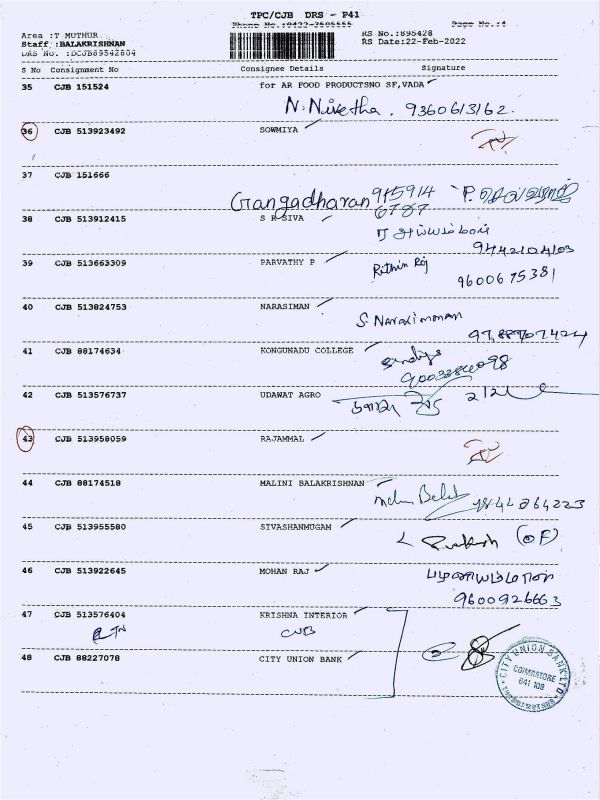 TPC/CJB DRS - P41
Phone No.:0422-2606666 Page No.:4
Area :T MUTHUR RS No.:895428
Staff :BALAKRISHNAN RS Date:22-Feb-2022
DRS No. :DCJB89542804
S No Consignment No Consignee Details Signature
35 CJB 151524 for AR FOOD PRODUCTSNO SF,VADA
N. Nivetha. 9360613162.
36 CJB 513923492 SOWMIYA
37 CJB 151666
Gangadharan 915914
6787
38 CJB 513912415 S R SIVA
9442104103
39 CJB 513663309 PARVATHY P Rithin Raj
9600675381
40 CJB 513824753 NARASIMAN
S. Narasimman
41 CJB 88174634 KONGUNADU COLLEGE
42 CJB 513576737 UDAWAT AGRO
43 CJB 513958059 RAJAMMAL
44 CJB 88174518 MALINI BALAKRISHNAN
45 CJB 513955580 SIVASHANMUGAM
46 CJB 513922645 MOHAN RAJ
9600926663
47 CJB 513576404 KRISHNA INTERIOR
CUB
48 CJB 88227078 CITY UNION BANK
CITY UNION BANK LTD
COIMBATORE
641 109